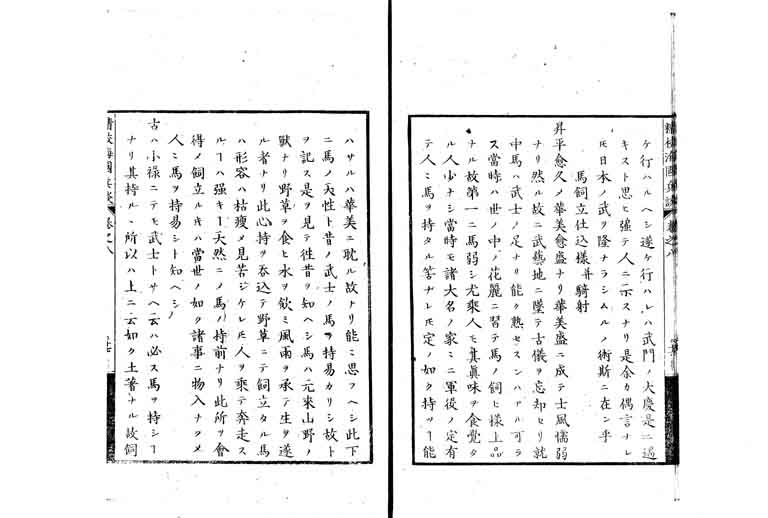 精校海國兵談 卷之八
ケ行ハルヘシ遂ケ行ハレハ武門ノ大慶是ニ過
キスト思ヒ强テ人ニ示スナリ是余カ偶言ナレ
𪜈日本ノ武ヲ隆ナラシムルノ術斯ニ在ン乎
馬飼立仕込樣幷騎射
昇平愈久ノ華美愈盛ナリ華美盛ニ成テ士風懦弱
ナリ然ル故ニ武藝地ニ墜テ古儀ヲ忘却セリ就
中馬ハ武士ノ足ナリ能ク熟セスンハアル可ラ
ス當時ハ世ノ中ノ花麗ニ習テ馬ノ飼ヒ樣上品
ナル故第一ニ馬弱シ尤乘人モ眞味ヲ食覺タ
ル人少ナシ當時モ諸大名ノ家ミニ軍役ノ定有
テ人ミ馬ヲ持タル筈ナレ𪜈定ノ如ク持ツヿ能
ハサルハ華美ニ耽ル故トリ能ミ思フヘシ此下
ニ馬ノ天性ト昔ノ武士ノ馬ヲ持易カリシ故ト
ヲ記ス是ヲ見テ徃昔ヲ知ヘシ馬ハ元來山野ノ
獸ナリ野草ヲ食ヒ水ヲ飮ミ風雨ヲ承テ生ヲ遂
ル者ナリ此心持ヲ呑込テ野草ニテ飼立タル馬
ハ形容ハ枯瘦メ見苦シケレ𪜈人ヲ乘テ奔走ス
ルヿハ强キヿ天然ニノ馬ノ持前ナリ此所ヲ會
得ノ飼立ル𪜈ハ當世ノ如ク諸事ニ物入ナクメ
人ミ馬ヲ持易シト知ヘシ
古ハ小祿ニテモ武士トサヘ云ハ必ス馬ヲ持シヿ
ナリ其持ルヽ所以ハ上ニ云如ク土著ナル故飼
精校海國兵談 卷之八